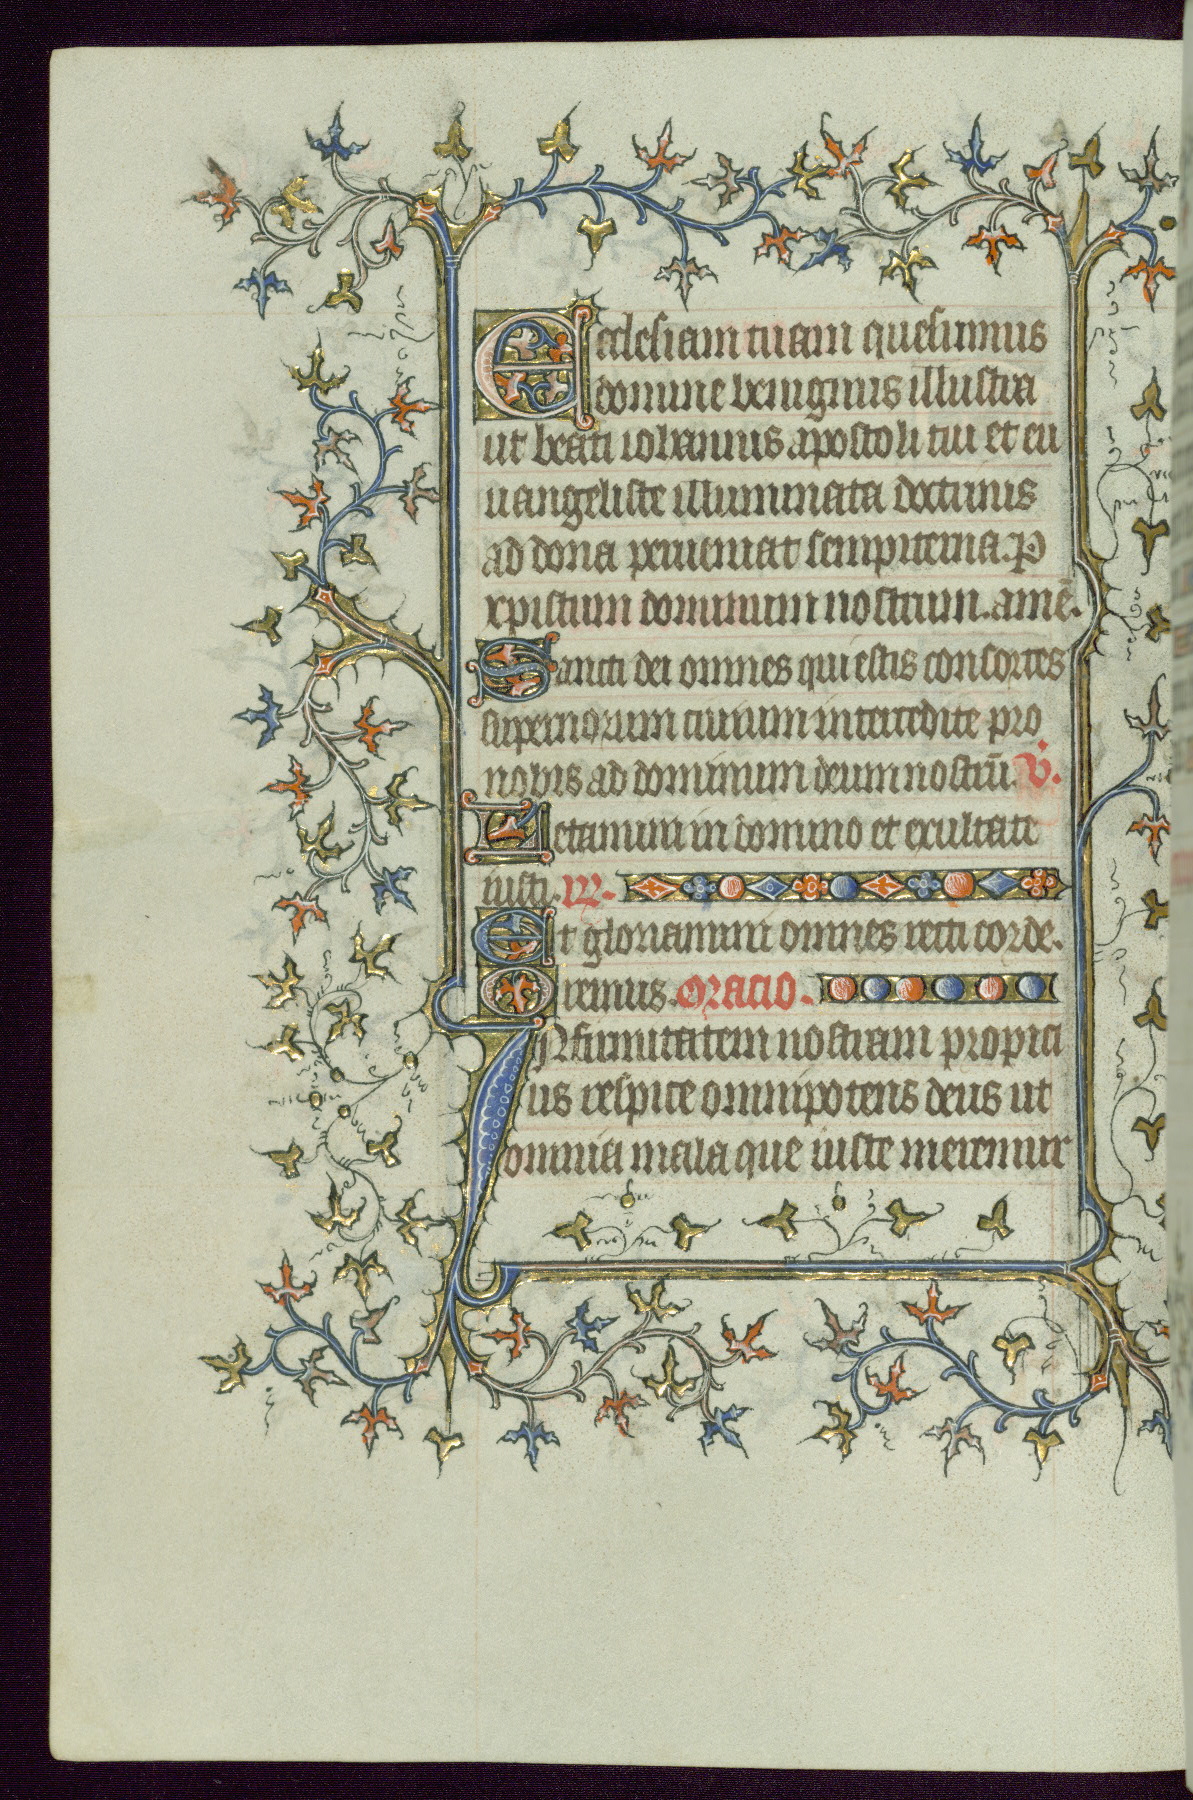 Ecclesiam tuam quesumus
domine benignus illustra
ut beati iohannis apostoli tui et eu
uangeliste illuminata doctrinis
ad dona perueniat sempiterna. P
xpistum dominum nostrum. amē.
Sancti dei omnes qui estis consortes
supernorum ciuium intercedite pro
nobis ad dominum deum nostrū. V.
Letamini in domino et exultate
iusti. R.
Et gloriamini omnes recti corde.
Oremus. Oracio.
Infirmitatem nostram propici
us respice omnipotens deus ut
omnia mala que iuste meremur